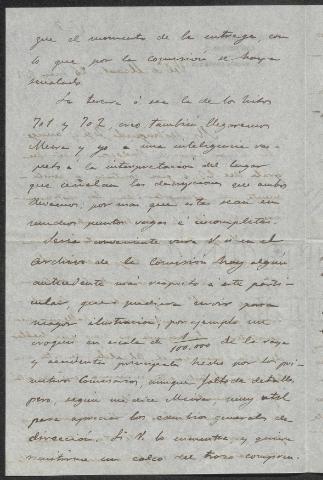 que el momento de la entrega, con
lo que por la comisión se haya
señalado.
La tercera ó sea la de los hitos
701 y 702, creo tambien llegaremos
Meira y yo a una inteligencia res-
pecto a la interpretación del lugar
que señalan las descripciones que ambos
llevamos, por mas que estas sean en
muchos puntos vagas é incompletas.
Seria conveniente viera V. si en el
archivo de la Comisión hay algún
antecedente más respecto a este parti-
cular, que pudiera enviar para
mayor ilustración; por ejemplo un
croquis en escala de 1/100.000 de la raya
y accidentes principales hecho por los pri-
mitivos Comisarios, aunque falto de detalles,
pero, segun me dice Meira muy util
para apreciar los cambios generales de
dirección. Si V. lo encuentra y quiere
remitirme un calco del trozo compren-